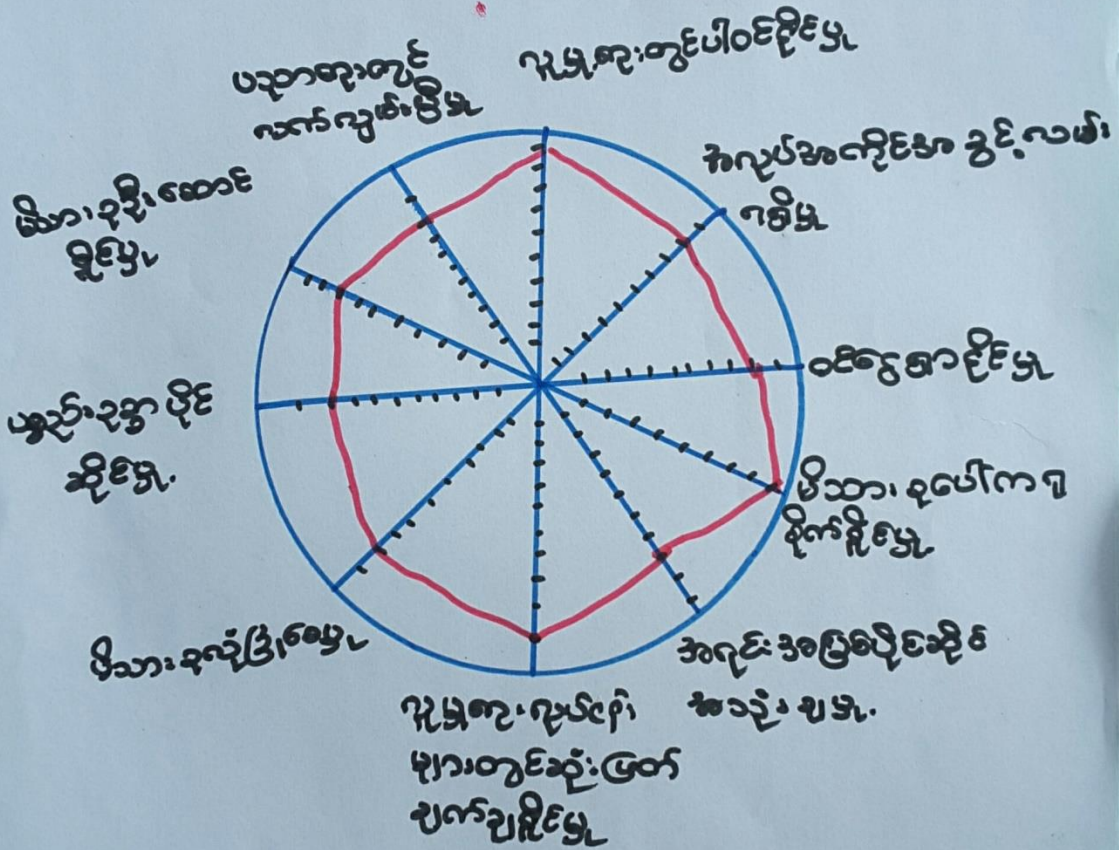 လူမှုရေးတွင်ပါဝင်နိုင်မှု
အလုပ်အကိုင်အခွင့်အလမ်း
ရရှိမှု
ဝင်ငွေရှာနိုင်မှု
မိသားစုပေါ်ကရ
စိုက်နိုင်မှု
အရင်းအမြစ်ပိုင်ဆိုင်
အသုံးချမှု.
လူမှုရေးလုပ်ငန်း
များတွင်ဆုံးဖြတ်
ချက်ချနိုင်မှု
မိသားစုလုံခြုံစေမှု
ပစ္စည်းဥစ္စာပိုင်
ဆိုင်မှု.
မိသားစုဦးဆောင်
နိုင်မှု
ပညာရေးတွင်
လက်လှမ်းမှီမှု